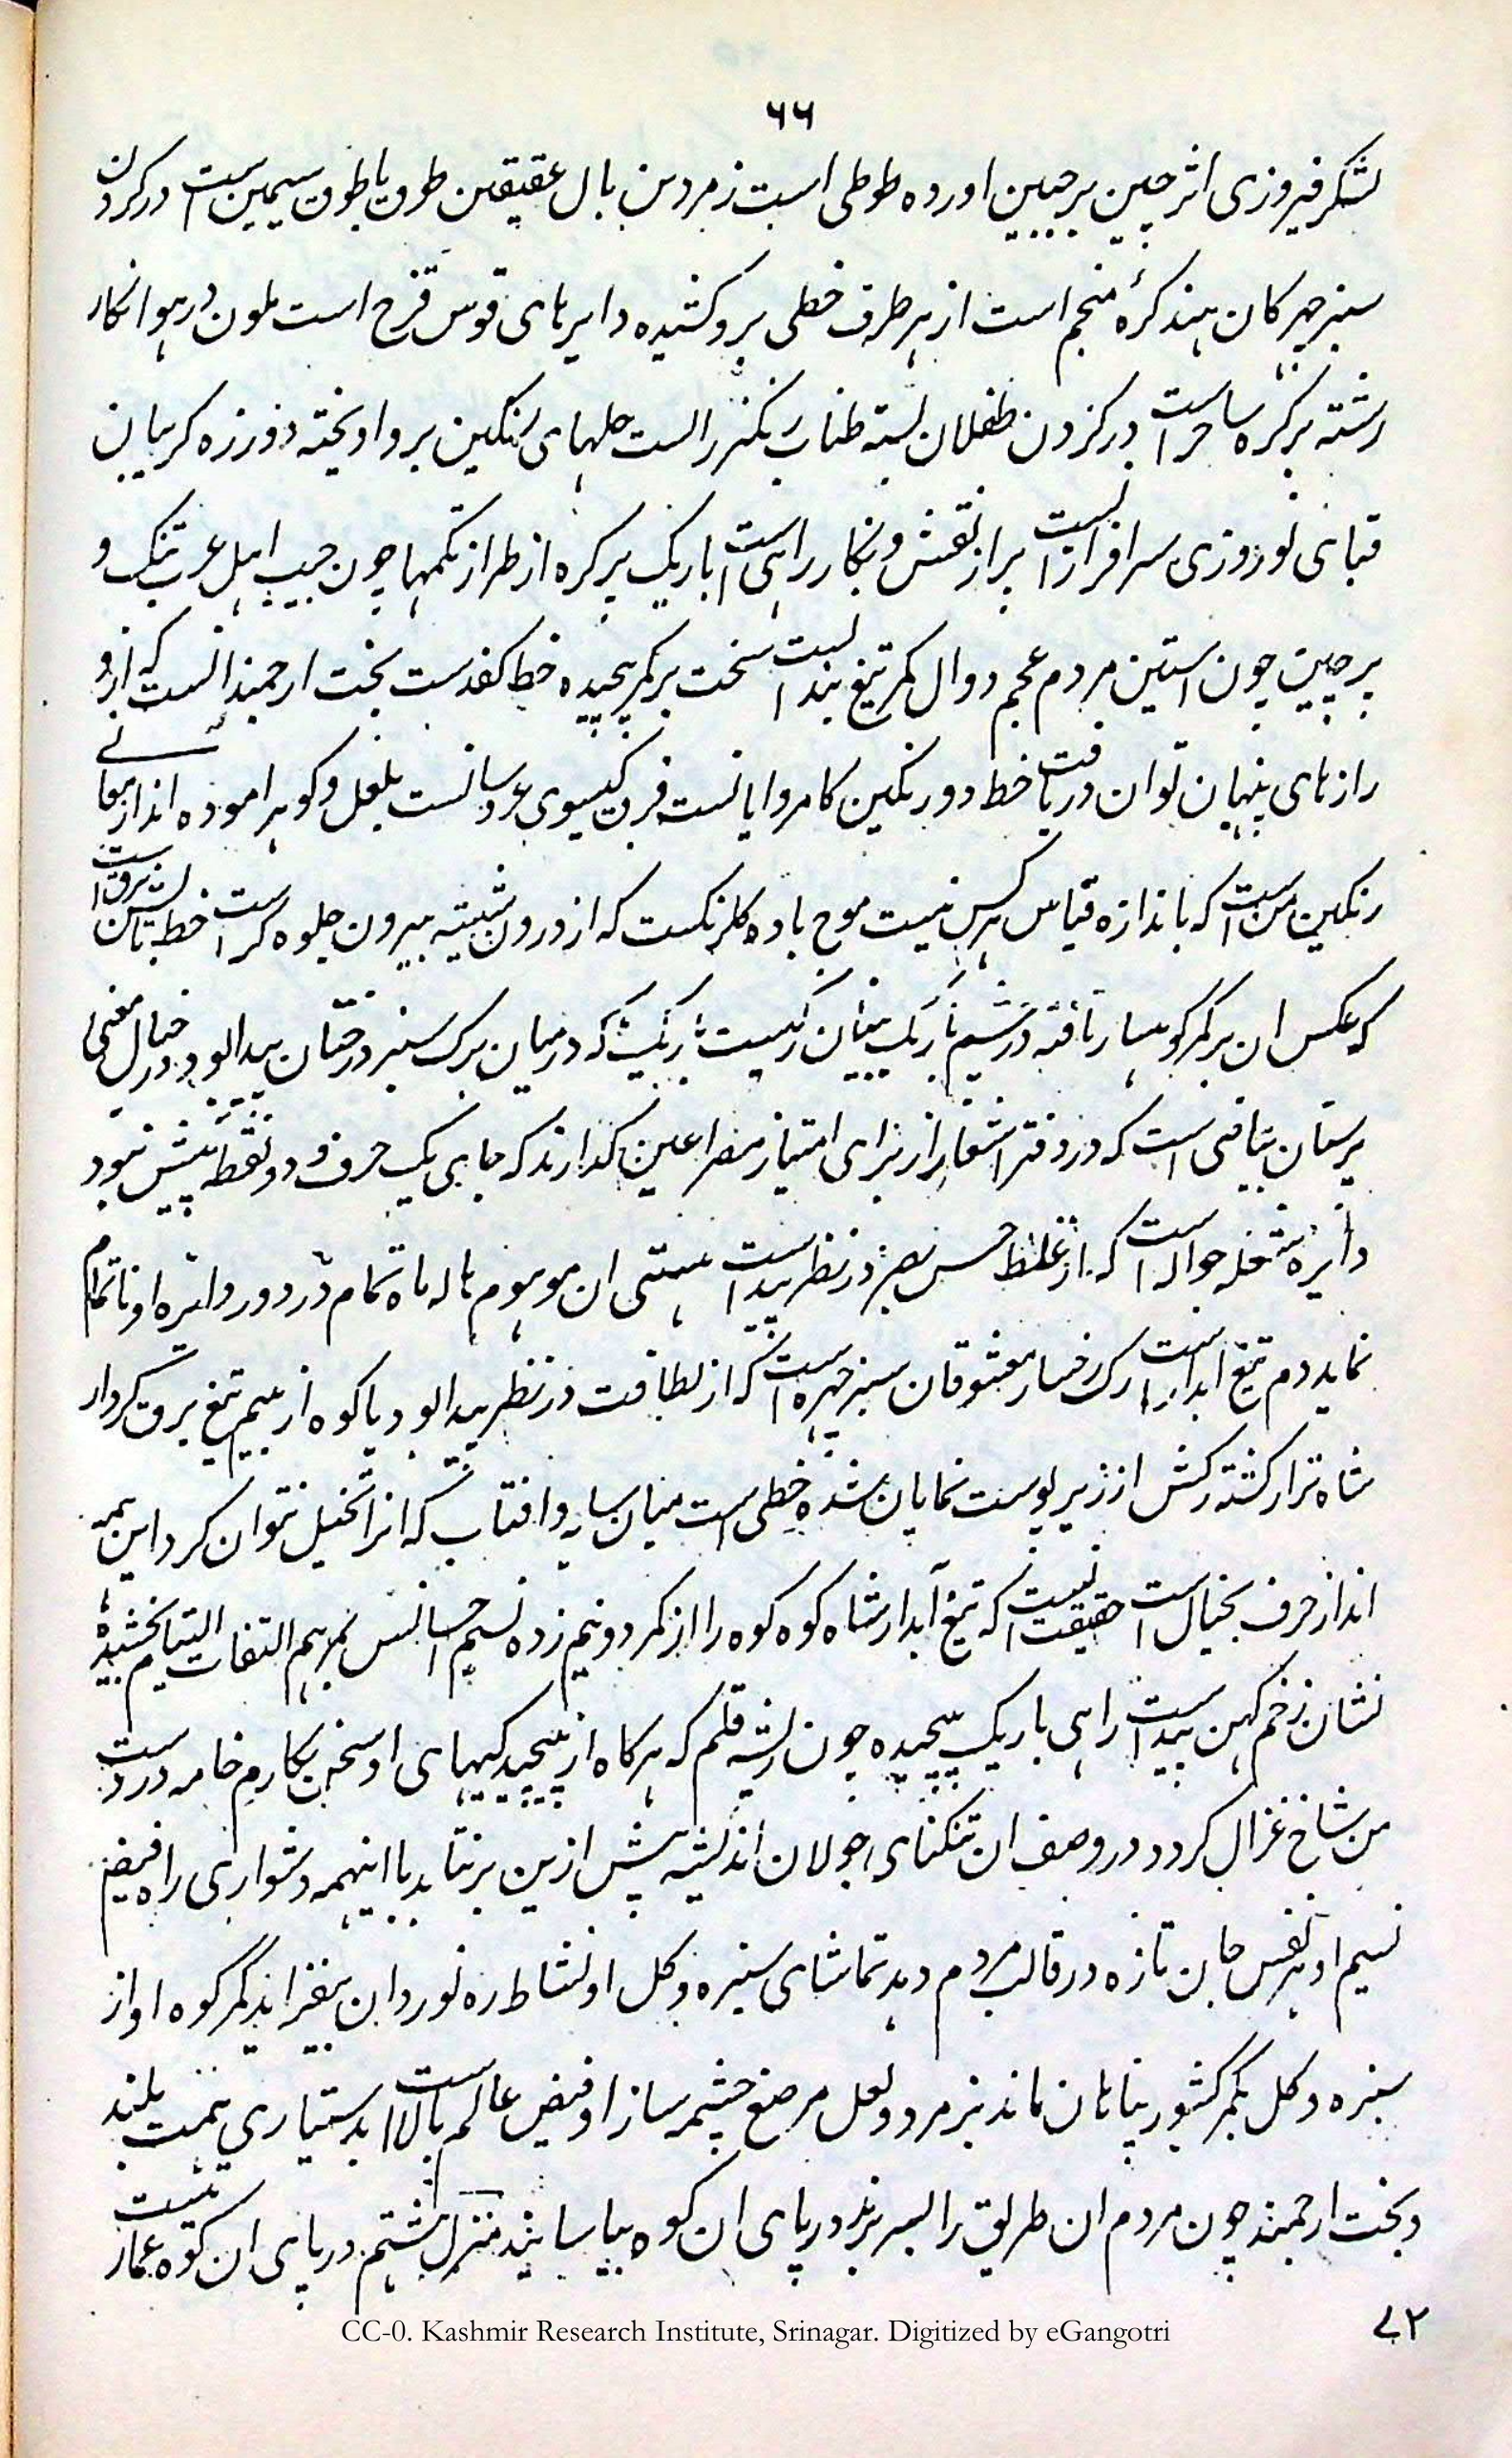 ۶۶
لشکر فیروزی اثر چین بر جبین اورده طوطی است زمردین بال عقیقین طوق یا طوق سیمین است در کردن
سبز چهرکان هند کرهٔ منجم است از هر طرف خطی برو کشیده دایرهای قوس قزح است ملون در هوا انکار
رشته پر کره ساحر است در کردن طفلان بسته طناب رنکرز است حلهای رنکین برو اویخته دور زه کریبان
قبای نوروزی سرافراز است پر از نقش و نکار راهی است باریک پر کره از طراز تکمها چون جیب اهل عرب تنک و
پر چین چون استین مردم عجم دوال کمر تیغ بند است سخت بر کمر پیچیده خط کف دست بخت ارجمند انست که از و
رازهای پنهان توان دریافت خط دور نکین کامروایانست فرق کیسوی عروسانست بلعل و کوهر اموده انداز معانی
رنکین من است که باندازه قیاس هر کس نیست موج باده کلرنکست که از درون شیشه بیرون جلوه کر است خط برق است
که عکس ان بر کمر کوهسار تافته در چشم باریک بینان رکیست باریک که در میان برک سبز درختان پیدا بود در خیال معنی
پرستان بیاضی است که در دفتر اشعار از برای امتیاز مصراعین کذارند که جای یک حرف و دو نقطه بیش نبود
دایره شعله جواله است که از غلط حس بصر در نظر پیداست هستی ان موهوم هاله ماه تمام در دور دایره او ناتمام
نماید دم تیغ ابدار است رک رخسار معشوقان سبز چهره است که از لطافت در نظر پیدا بود یا کوه از بیم تیغ برق کردار
شاه نزار کشته رکش از زیر پوست نمایان شده خطی است میان سایه و افتاب که انرا تخیل نتوان کرد این همه
انداز حرف بخیال است حقیقت انست که تیغ آبدار شاه کوه کوه را از کمر دو نیم زده نسیم احسانش بمرهم التفات التیام بخشیده
نشان زخم کهن پیداست راهی باریک پیچیده چون ریشه قلم که هر کاه از پیچیدکیهای او سخن نکارم خامه در دست
من شاخ غزال کردد در وصف ان تنکنای جولان اندیشه بیش ازین بر نتابد با اینهمه دشواری راه فیض
نسیم او هر نفس جان تازه در قالب مردم دهد تماشای سبزه و کل او نشاط ره نوردان بیفزاید کمر کوه او از
سبزه و کل بکمر کشور پناهان ماند بزمرد و لعل مرصع چشمه ساز او فیض عالم بالا است بدستیاری همت بلند
و بخت ارجمند چون مردم ان طریق را بسر برند در پای ان کوه بیاسایند منزل هشتم در پای ان کوه عمارتیست
۷۲
CC-0. Kashmir Research Institute, Srinagar. Digitized by eGangotri